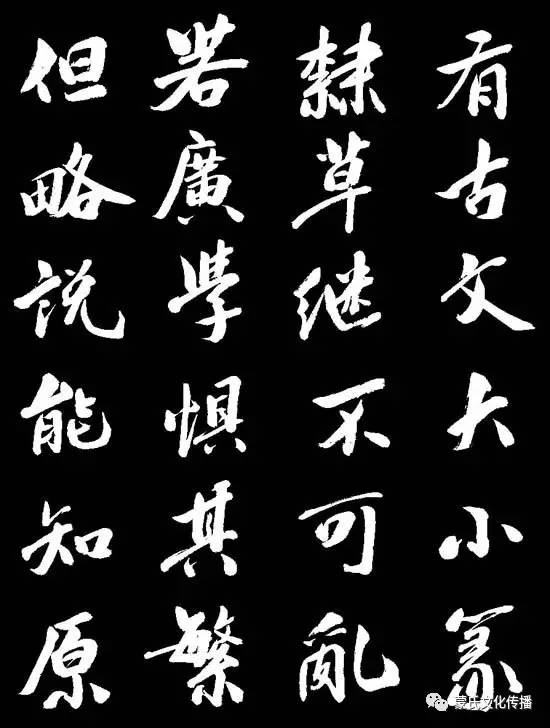 有古文大小篆
隸草继不可亂
若廣學懼其繁
但略说能知原
蒙氏文化传播